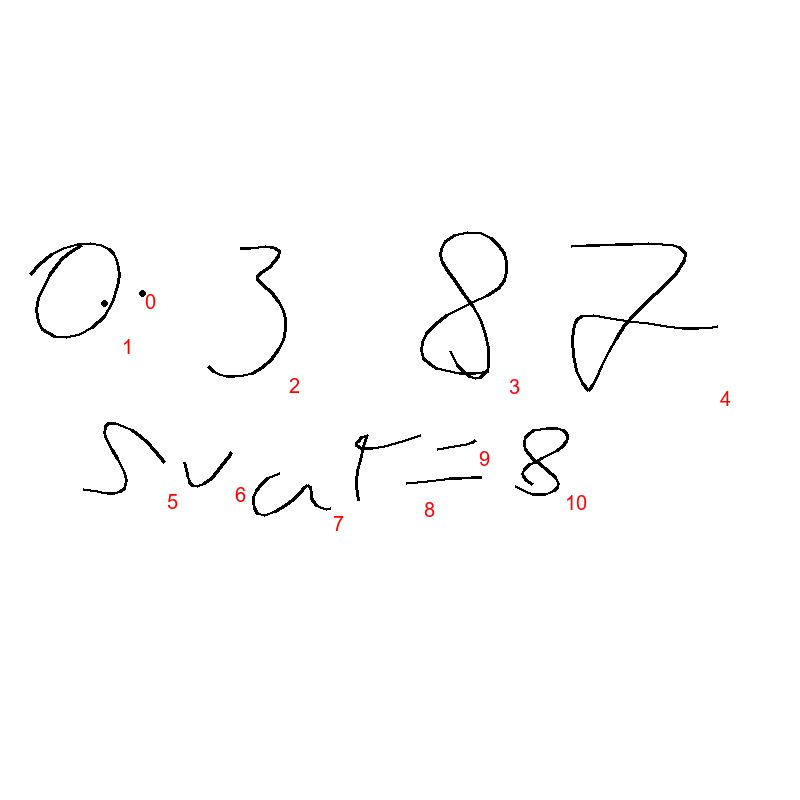 0.387
0 1 2 3 4
svar=8
5 6 7 8 9 10